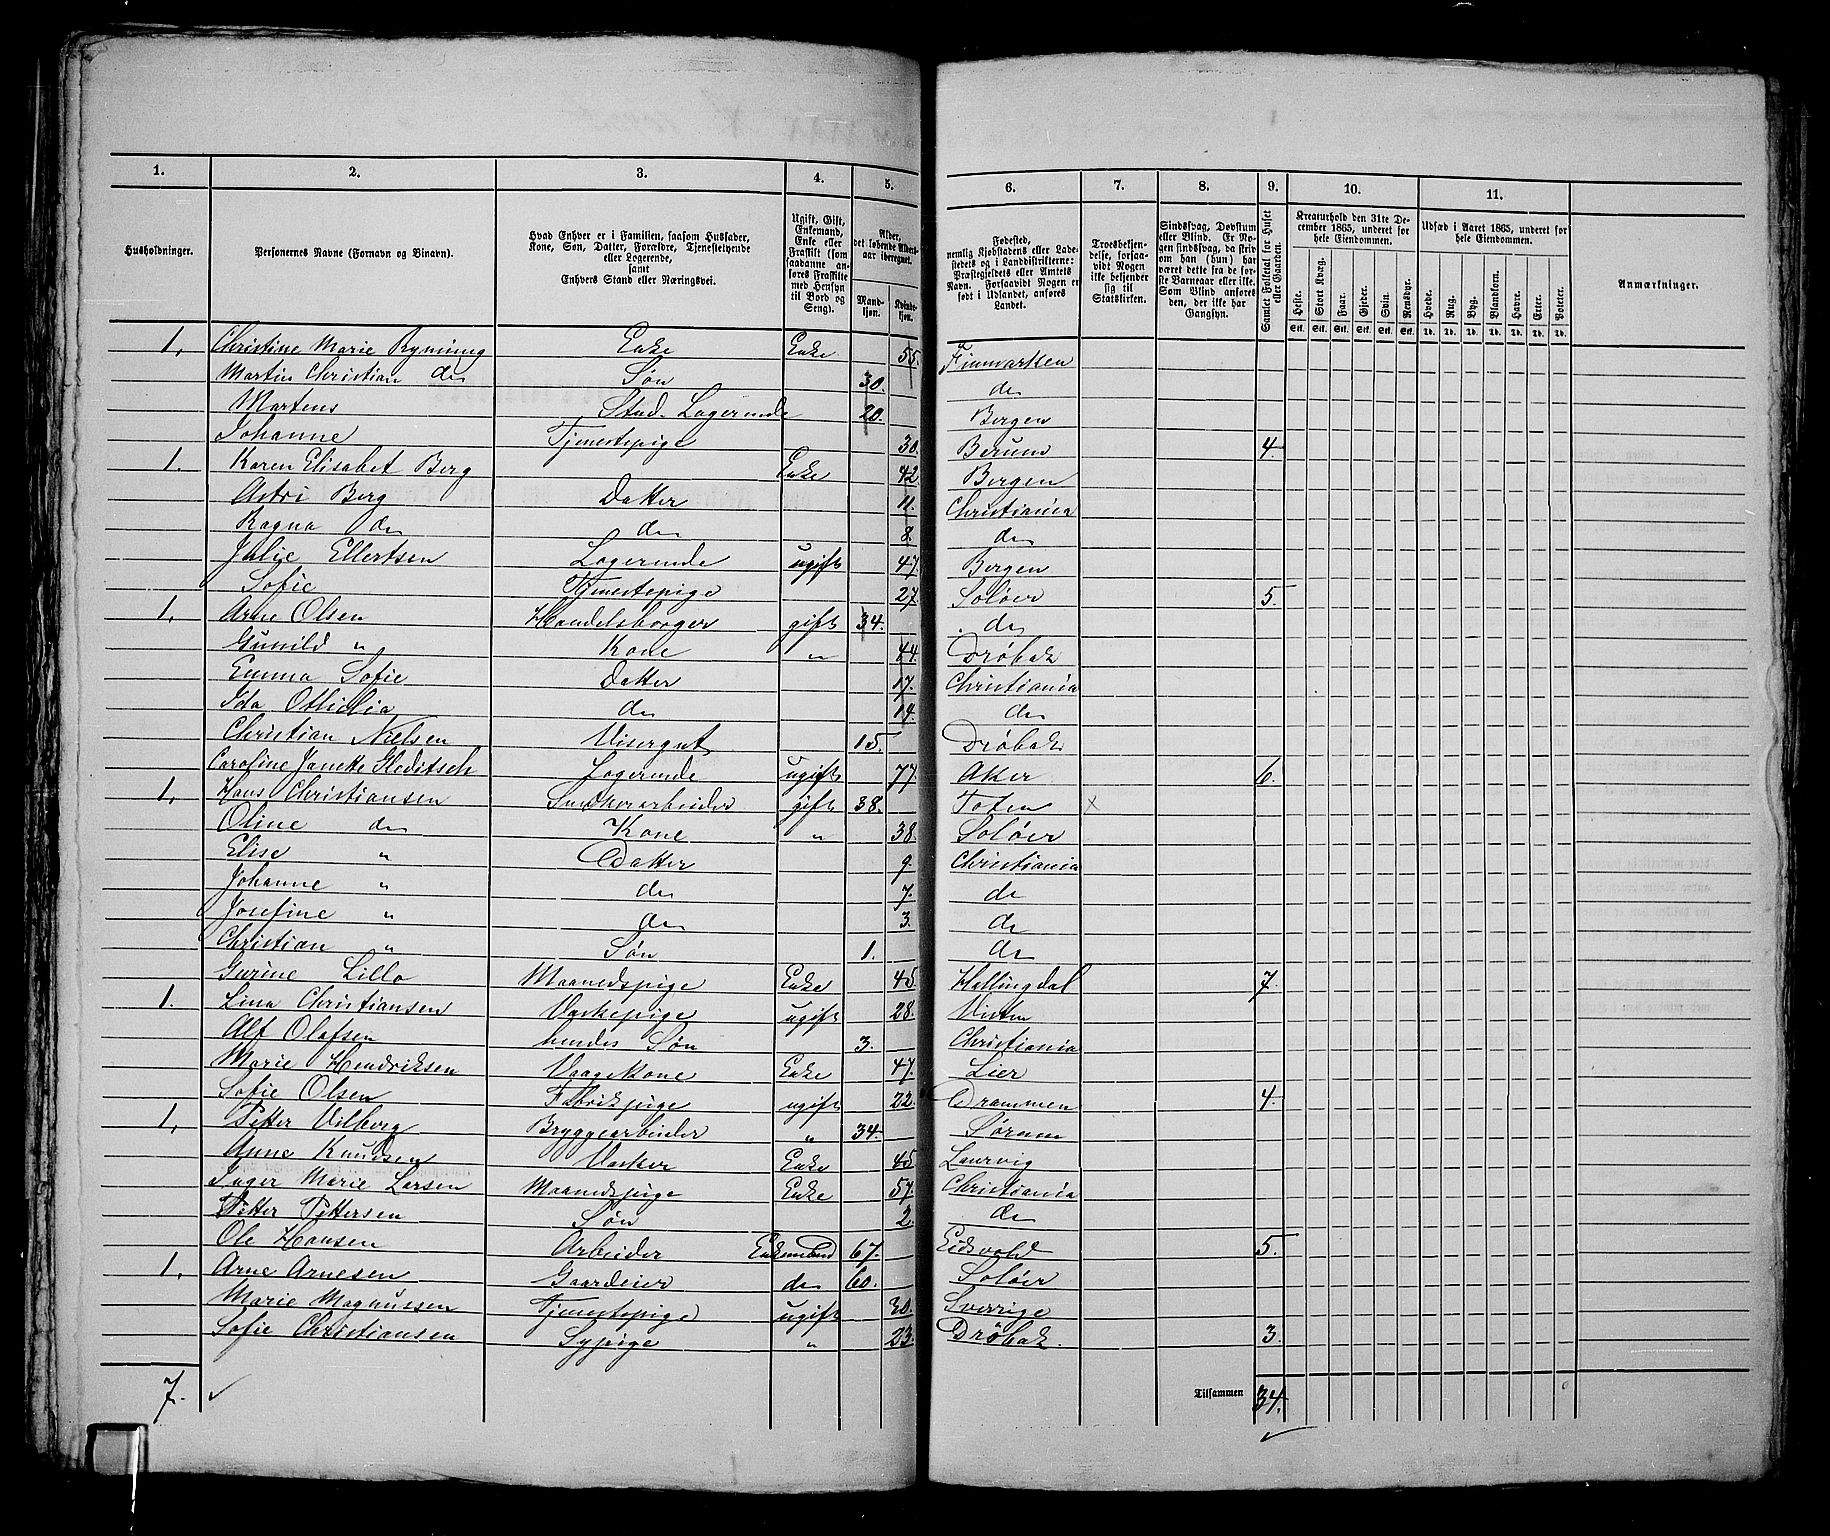 1. 2. 3. 4. 5. 6. 7. 8. 9. 10. 11.
Husholdninger.
Personernes Navne (Fornavn og Binavn).
Hvad Enhver er i Familien, saasom Husfader, Kone, Søn, Datter, Forældre, Tjenestetyende eller Logerende, samt Enhvers Stand eller Næringsvei.
Ugift, Gift, Enkemand, Enke eller Fraskilt (som saadanne anføres Fraskilte med Hensyn til Bord og Seng).
Alder, det løbende Alders-aar iberegnet.
Mand-kjøn. Kvinde-kjøn.
Fødested, nemlig Kjøbstadens eller Ladestedets og i Landdistrikterne: Præstegjeldets eller Amtets Navn. Forsaavidt Nogen er født i Udlandet, anføres Landet.
Troesbekjendelse, forsaavidt Nogen ikke bekjender sig til Statskirken.
Sindssvag, Døvstum eller Blind. Er Nogen sindssvag, da skrives om han (hun) har været dette fra de første Barneaar eller ikke. Som Blind anføres den, der ikke har Gangsyn.
Samlet Folketal for Huset eller Gaarden.
Kreaturhold den 31te December 1865, underet for hele Eiendommen.
Heste. Stort Kvæg. Faar. Gjeder. Svin. Rensdyr.
Stk. Stk. Stk. Stk. Stk. Stk.
Udsæd i Aaret 1865, underet for hele Eiendommen.
Hvede. Rug. Byg. Blandkorn. Havre. Erter. Poteter.
Td. Td. Td. Td. Td. Td. Td.
Anmærkninger.
1. Christine Marie Ryning Enke Enke 55. Finmarken
Martin Christian do Søn 30. do
Martens Stud. Logerende 20. Bergen
Johanne Tjenestepige 30. Berum 4.
1. Karen Elisabet Berg Enke 42 Bergen
Astri Berg Datter 11. Christiania
Ragna do do 8. do
Julie Ellertsen Logerende ugift 47. Bergen
Sofie Tjenestepige 27. Soløer 5.
1. Arne Olsen Handelsborger gift 34. do
Gunild " Kone " 44. Drøbak
Emma Sofie Datter 17. Christiania
Ida Ottilia do 14. do
Christian Nielsen Visergut 15. Drøbak
Caroline Janette Gleditsch Logerende ugift 77. Aker 6.
1. Hans Christiansen Snedkerarbeider gift 38. Toten x
Oline do Kone " 38. Soløer
Elise " Datter 9. Christiania
Johanne " do 7. do
Josefine " do 3. do
Christian " Søn 1. do
Gurine Lillo Maanedspige Enke 45. Hallingdal 7.
1. Lina Christiansen Vaskepige ugift 28. Vesten
Alf Olafsen hendes Søn 3. Christiania
Marie Hendriksen Vaagekone Enke 47. Lier
Sofie Olsen Fabrikpige ugift 22. Drammen 4.
1. Petter Vilberg Bryggearbeider " 34. Sørum
Anne Knudsen Vasker Enke 45. Laurvig
Inger Marie Larsen Maanedspige Enke 57. Christiania
Petter Pettersen Søn 2. do
Ole Hansen Arbeider Enkemand 67. Eidsvold 5.
1. Arne Arnesen Gaardeier do 60. Soløer
Marie Magnussen Tjenestepige ugift 30. Sverrige
Sofie Christiansen Sypige " 23. Drøbak. 3.
7. Tilsammen 34.